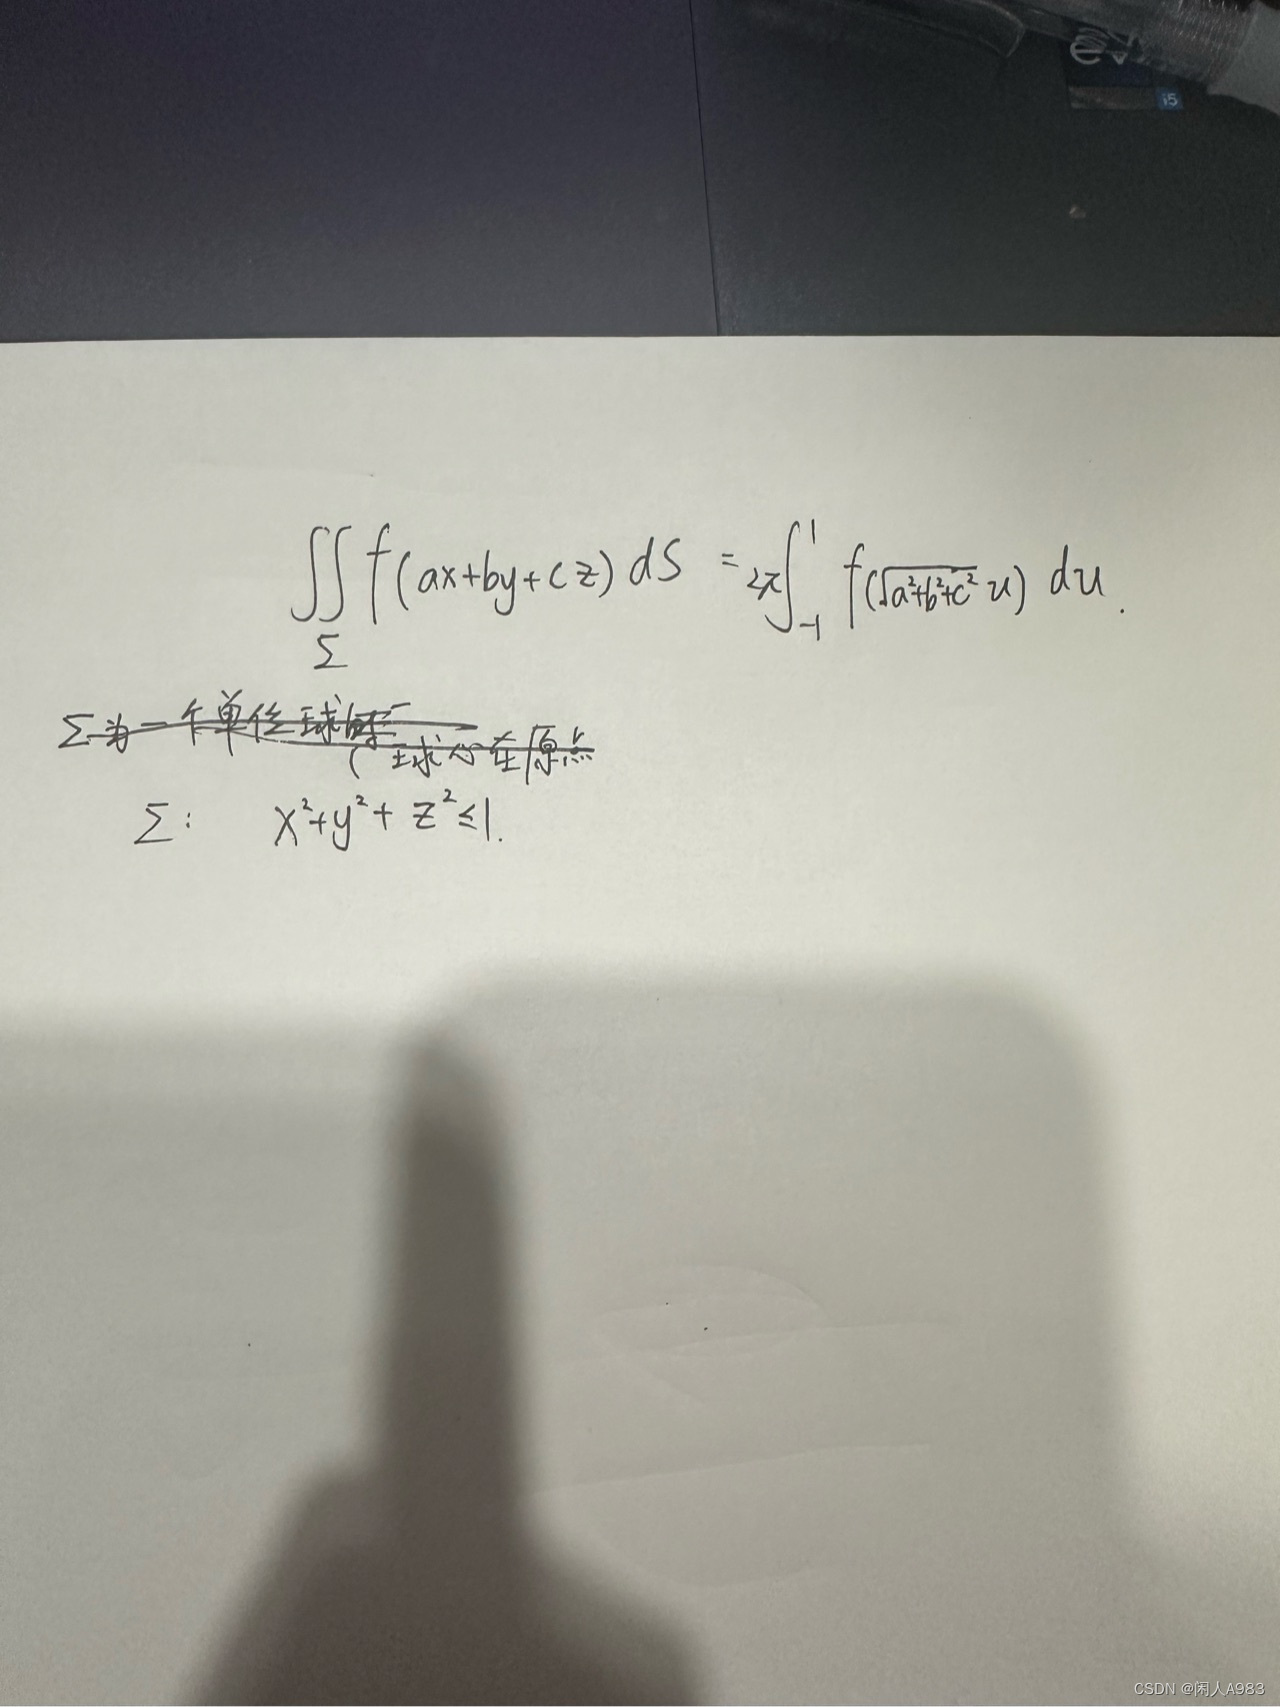 i5
∬_Σ f(ax+by+cz) dS = 2π∫_{-1}^{1} f(√(a²+b²+c²) u) du.
Σ为一个单位球
(球心在原点
Σ: x²+y²+z²≤1.
CSDN @闲人A983